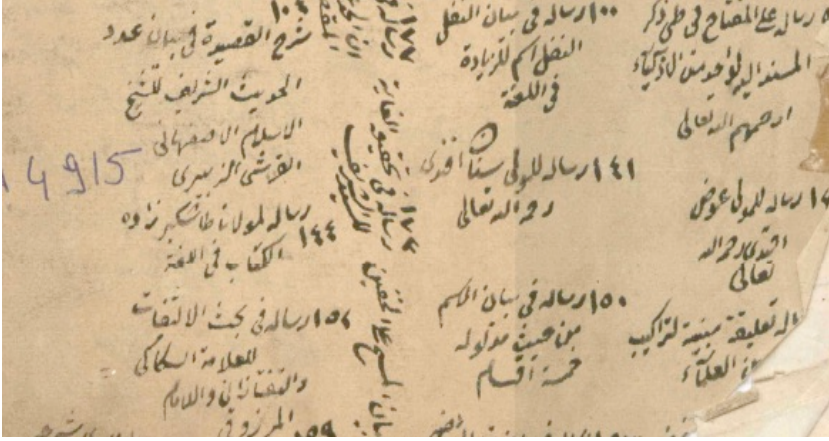 رساله على المفتاح في طى ذكر
المسند اليه لواحد من الاذكياء
ارحمهم الله تعالى
رساله للمولى عوض
افندى رحمه الله
تعالى
تعليقة مبنية لتراكيب
العلماء
١٠٠ رساله في بيان النفل
النفل اسم للزيادة
في اللغة
١٤١ رساله للمولى سنان افندى
رحمه الله تعالى
١٥٠ رساله في بيان الاسم
من حيث مدلوله
خمسة اقسام
١٧٧ رساله في
١٧٤ رساله في تحقيق الغاية
للسيد الشريف
بيان المسح على الخفين
١٠٤
شرح القصيدة في بيان عدد
الحديث الشريف للشيخ
الاسلام الاصفهانى
القرشى الزبيرى
4915
رساله لمولانا طاشكبرىزاده
١٤٤ الكتاب في اللغة
١٥٤ رساله في بحث الالتفات
للعلامة السكاكى
والتفتازانى والامام
المرزوقى
١٥٩